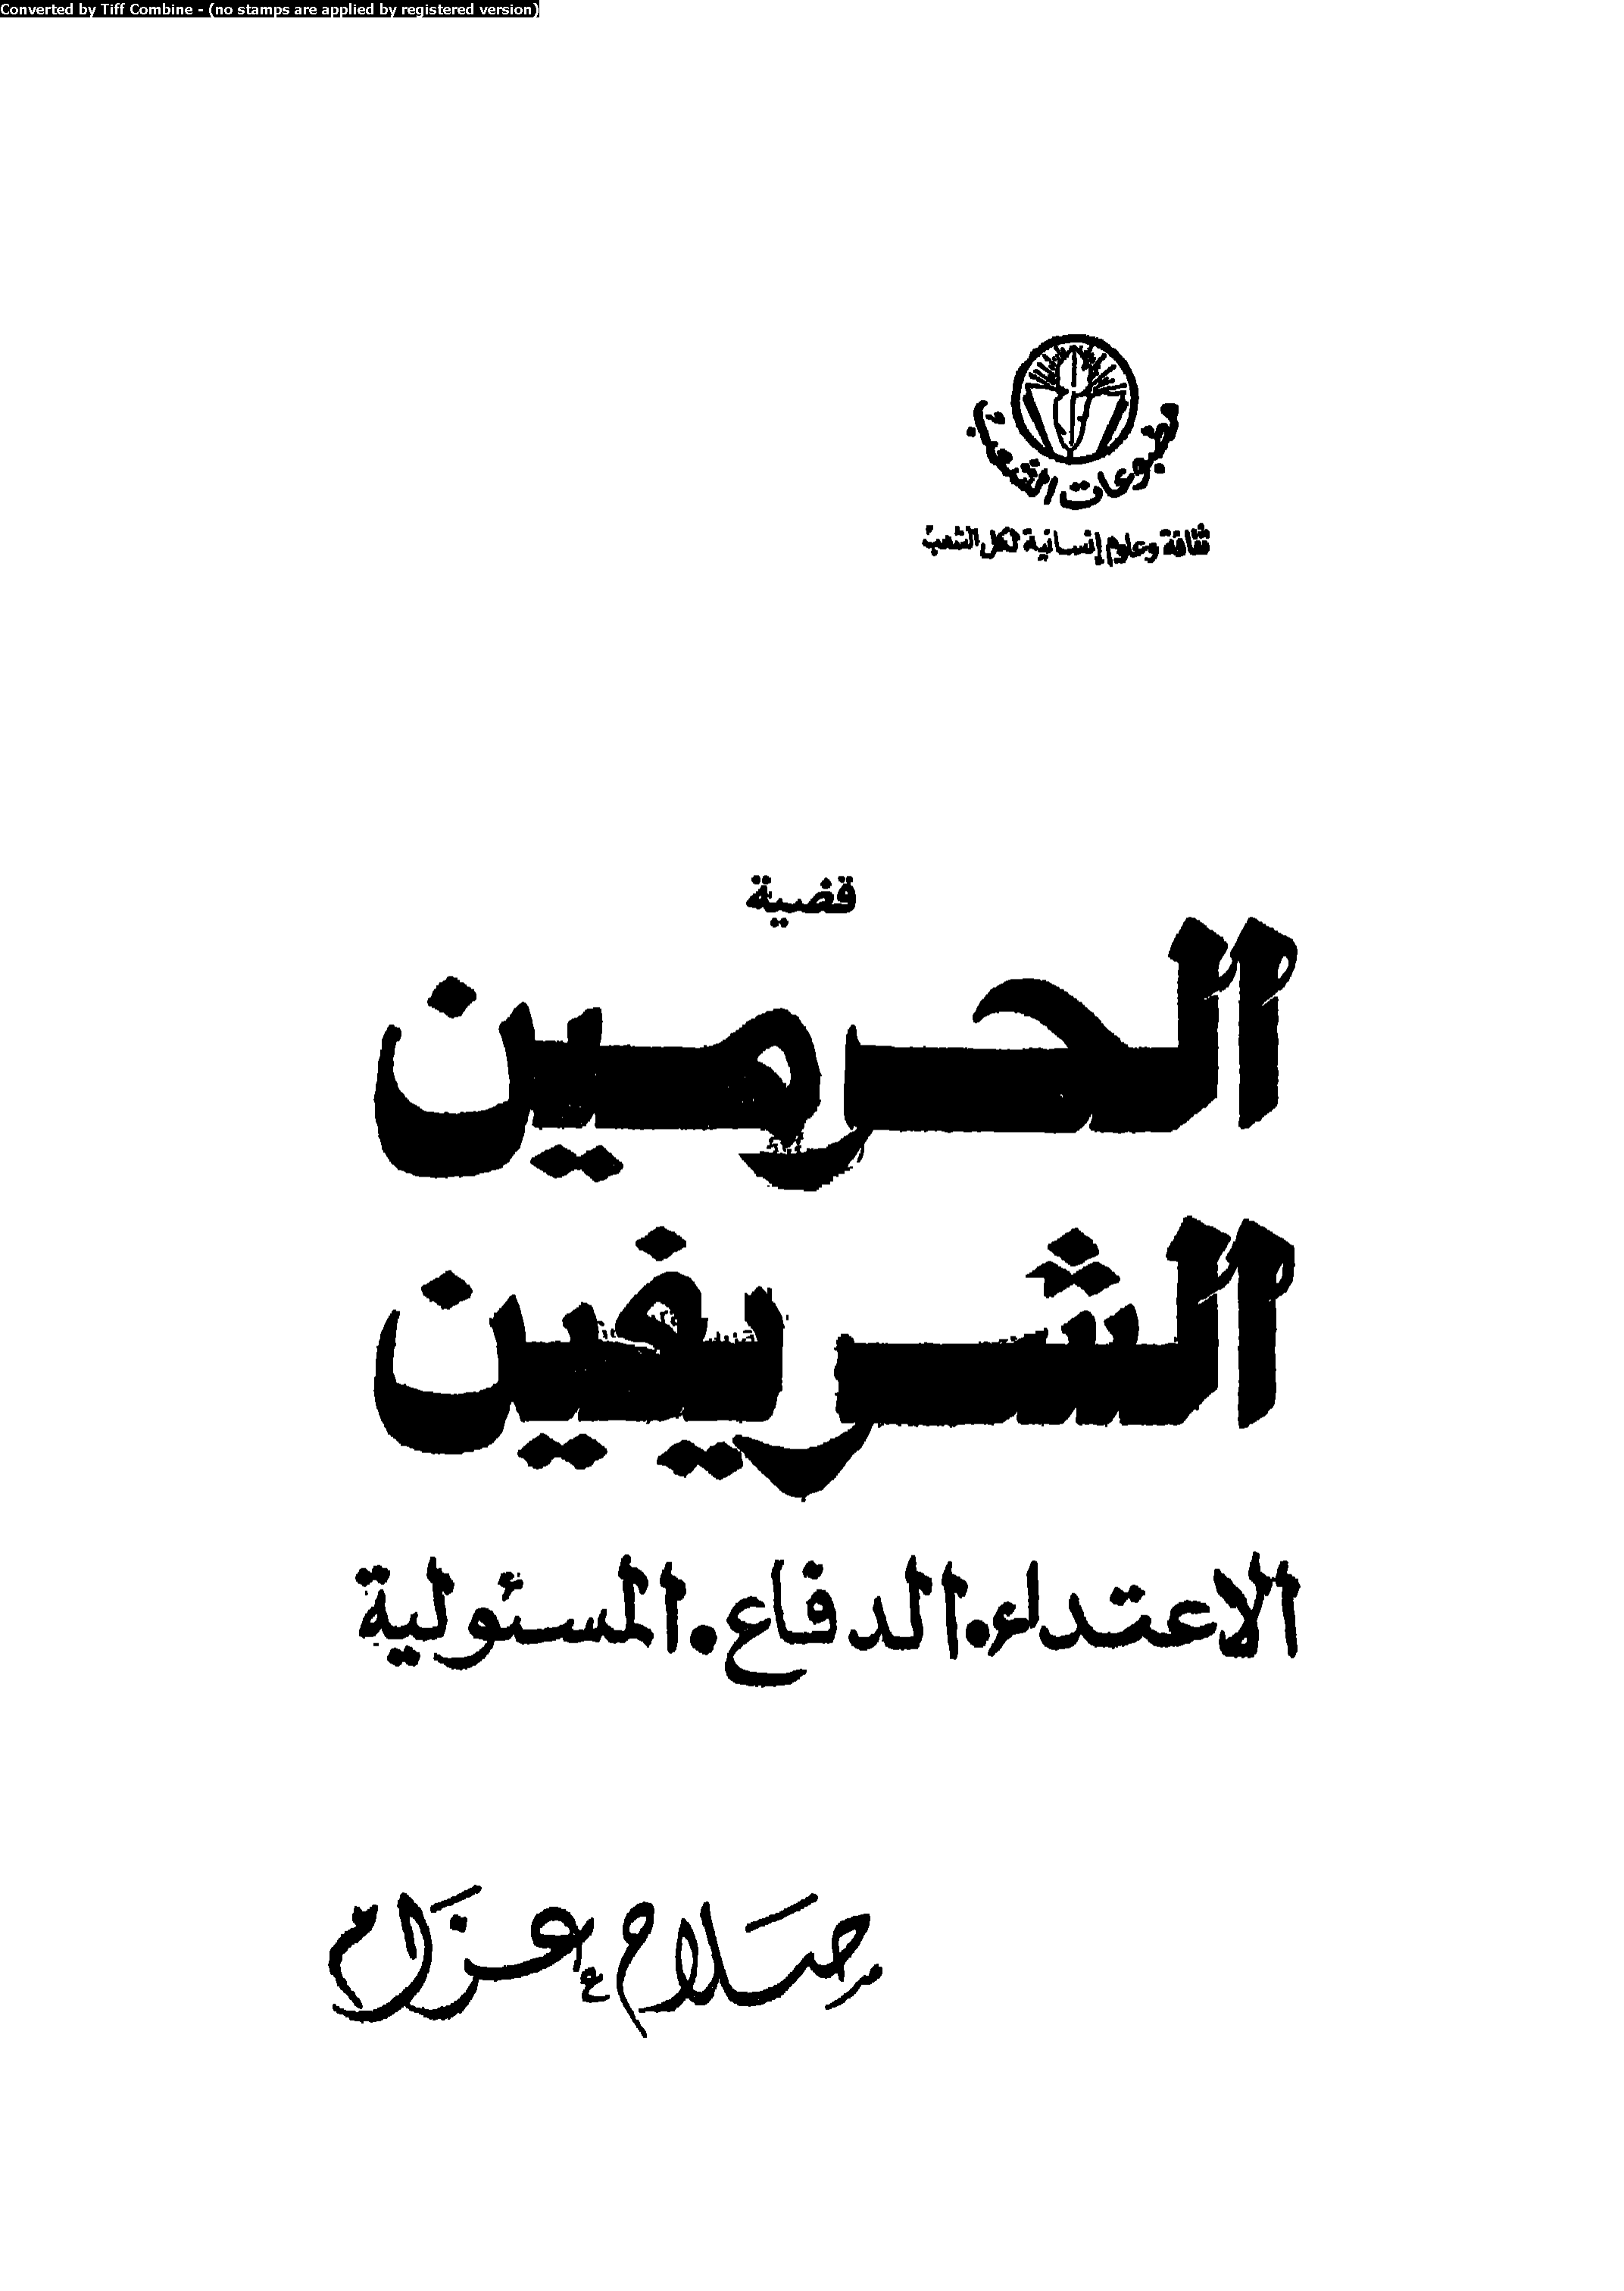 Converted by Tiff Combine - (no stamps are applied by registered version)
مطبوعات الشعب
ثقافة وعلوم إنسانية لكل الشعب
قضية
الحرمين
الشريفين
الاعتداء.الدفاع.المسئولية
صلاح عزام